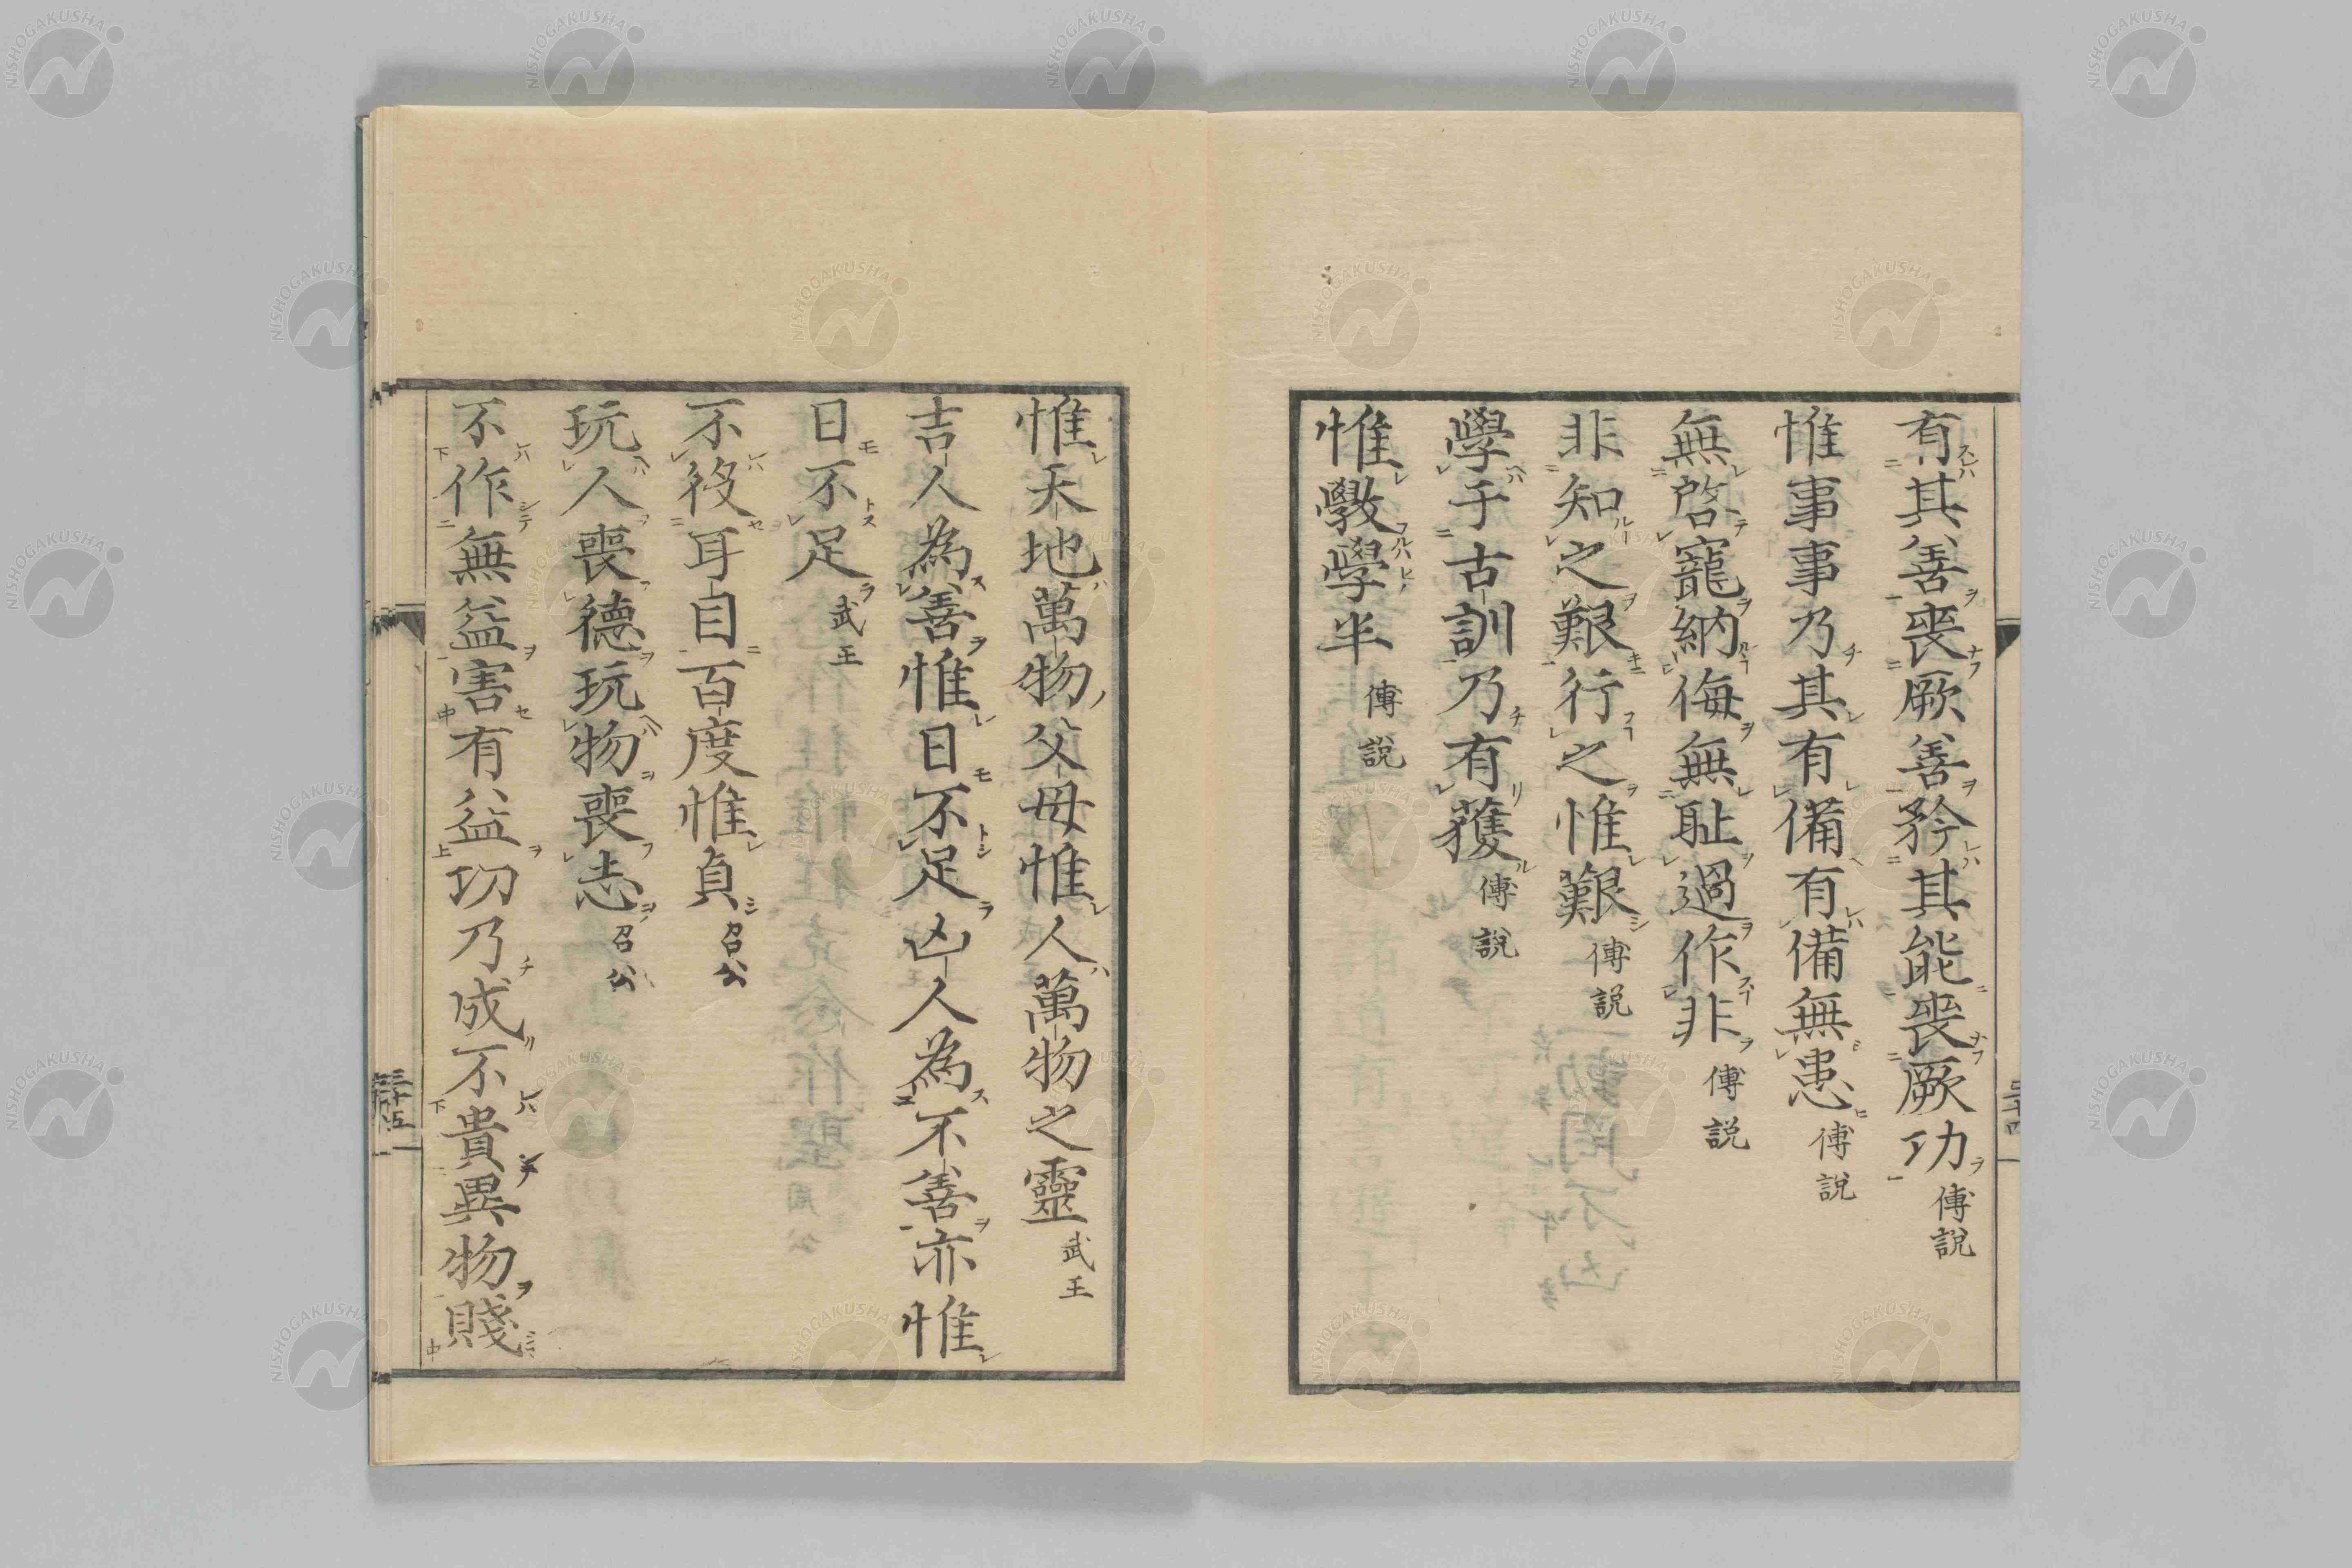 有其善喪厥善矜其能喪厥功 傅説
惟事事乃其有備有備無患 傅説
無啓寵納侮無恥過作非 傅説
非知之艱行之惟艱 傅説
學于古訓乃有獲 傅説
惟斆學半 傅説
惟天地萬物父母惟人萬物之靈 武王
吉人為善惟日不足凶人為不善亦惟
日不足 武王
不役耳目百度惟貞 召公
玩人喪德玩物喪志 召公
不作無益害有益功乃成不貴異物賤
NISHOGAKUSHA